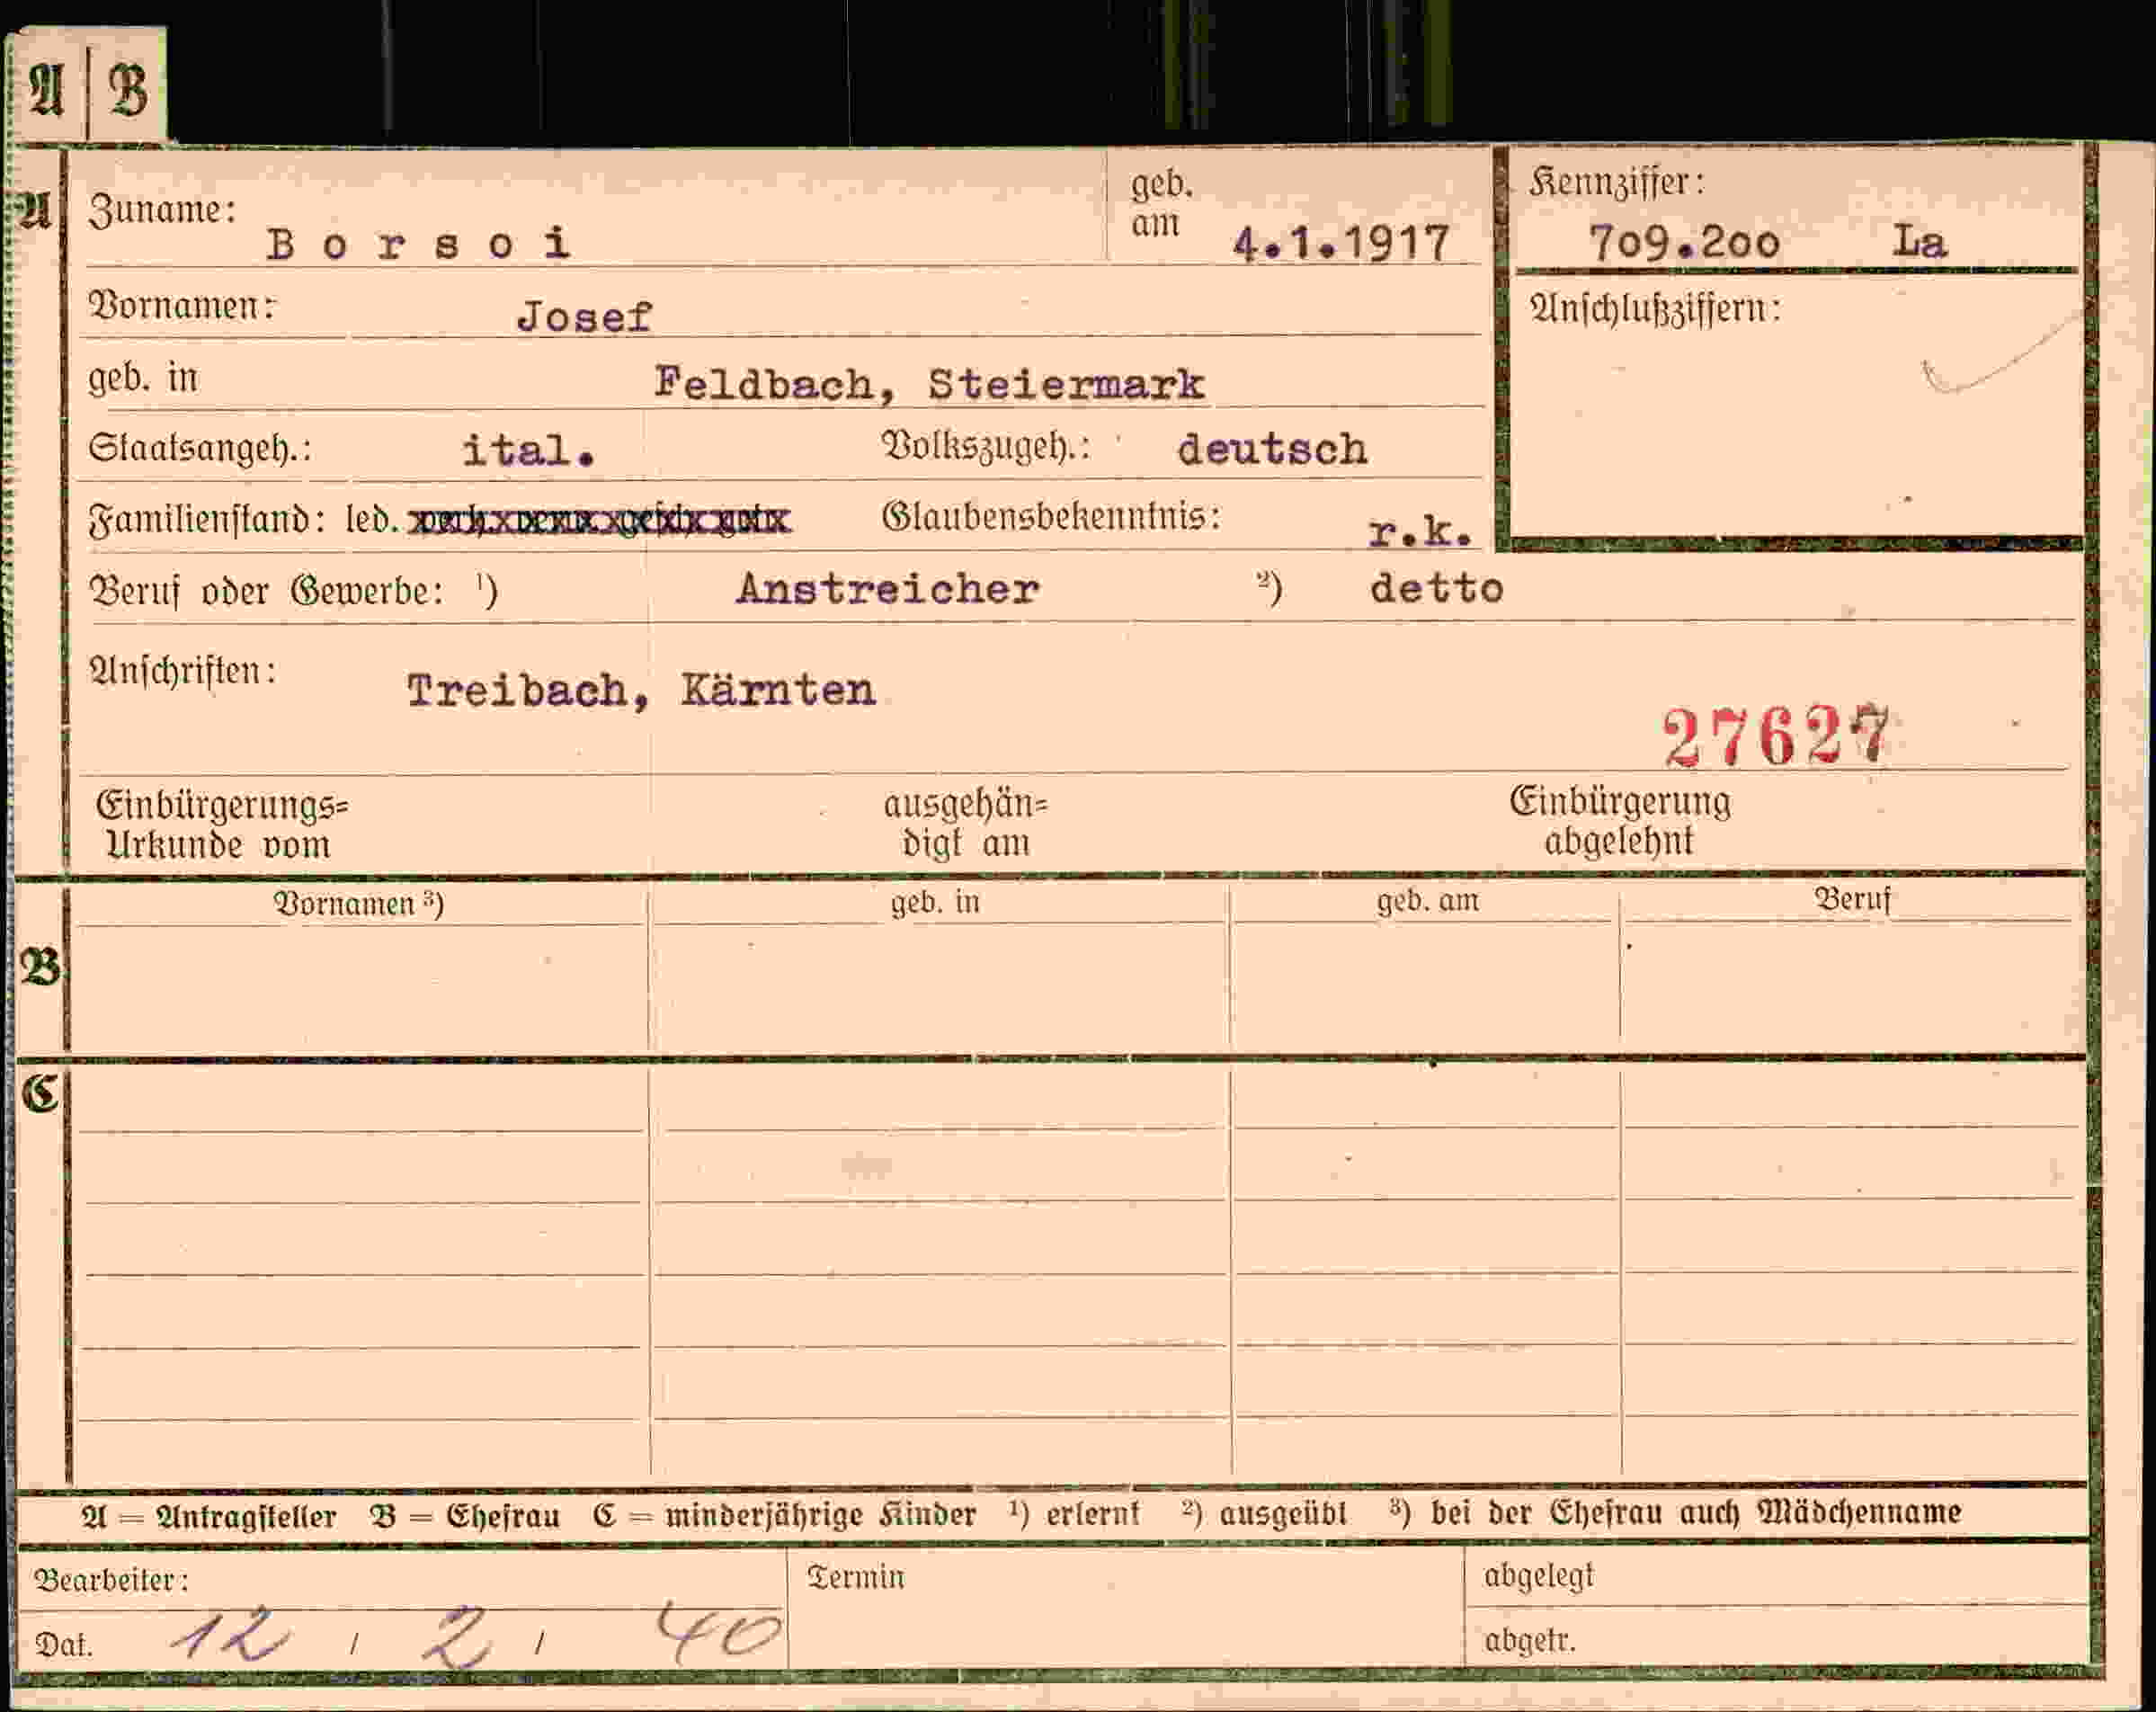 A | B
A
Zuname: Borsoi geb. am 4.1.1917 Kennziffer: 709.200 La
Vornamen: Josef Anschlußziffern:
geb. in Feldbach, Steiermark
Staatsangeh.: ital. Volkszugeh.: deutsch
Familienstand: led. Glaubensbekenntnis: r.k.
Beruf oder Gewerbe: ¹) Anstreicher ²) detto
Anschriften: Treibach, Kärnten
27627
Einbürgerungs= ausgehän= Einbürgerung
Urkunde vom digt am abgelehnt
Vornamen ³) geb. in geb. am Beruf
B
C
A = Antragsteller B = Ehefrau C = minderjährige Kinder ¹) erlernt ²) ausgeübt ³) bei der Ehefrau auch Mädchenname
Bearbeiter: Termin abgelegt
Dat. 12 / 2 / 40 abgetr.